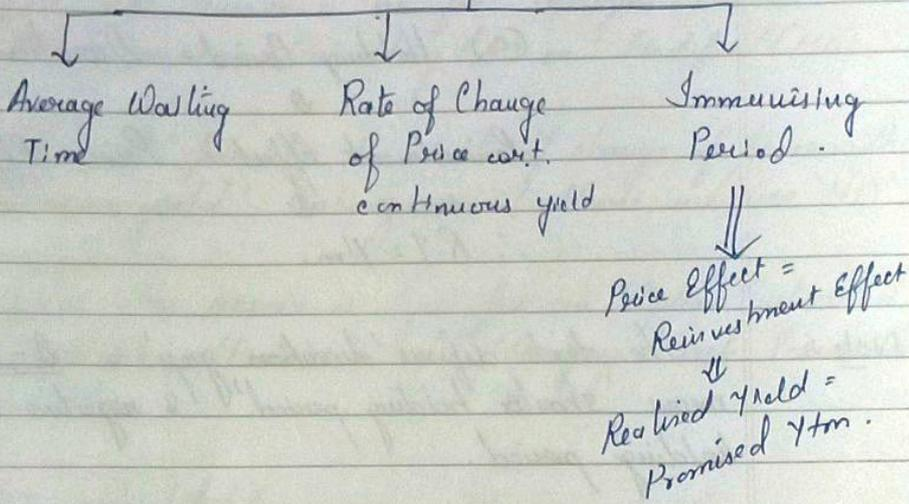 Average Waiting
Time
Rate of Change
of Price w.r.t.
continuous yield
Immunising
Period.
Price Effect =
Reinvestment Effect
Realised Yield =
Promised Ytm.